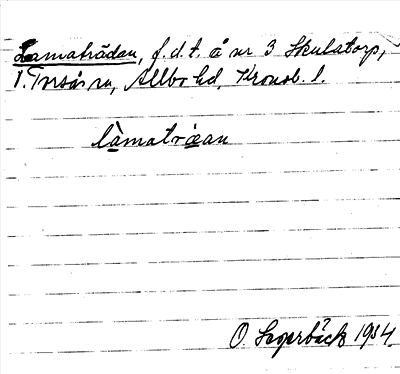 Lamaträdan, f.d.t. å nr 3 Skulatorp,
V. Torsås sn, Allbo hd, Kronob. l.
làmatrǽan
O. Lagerbäck 1934.